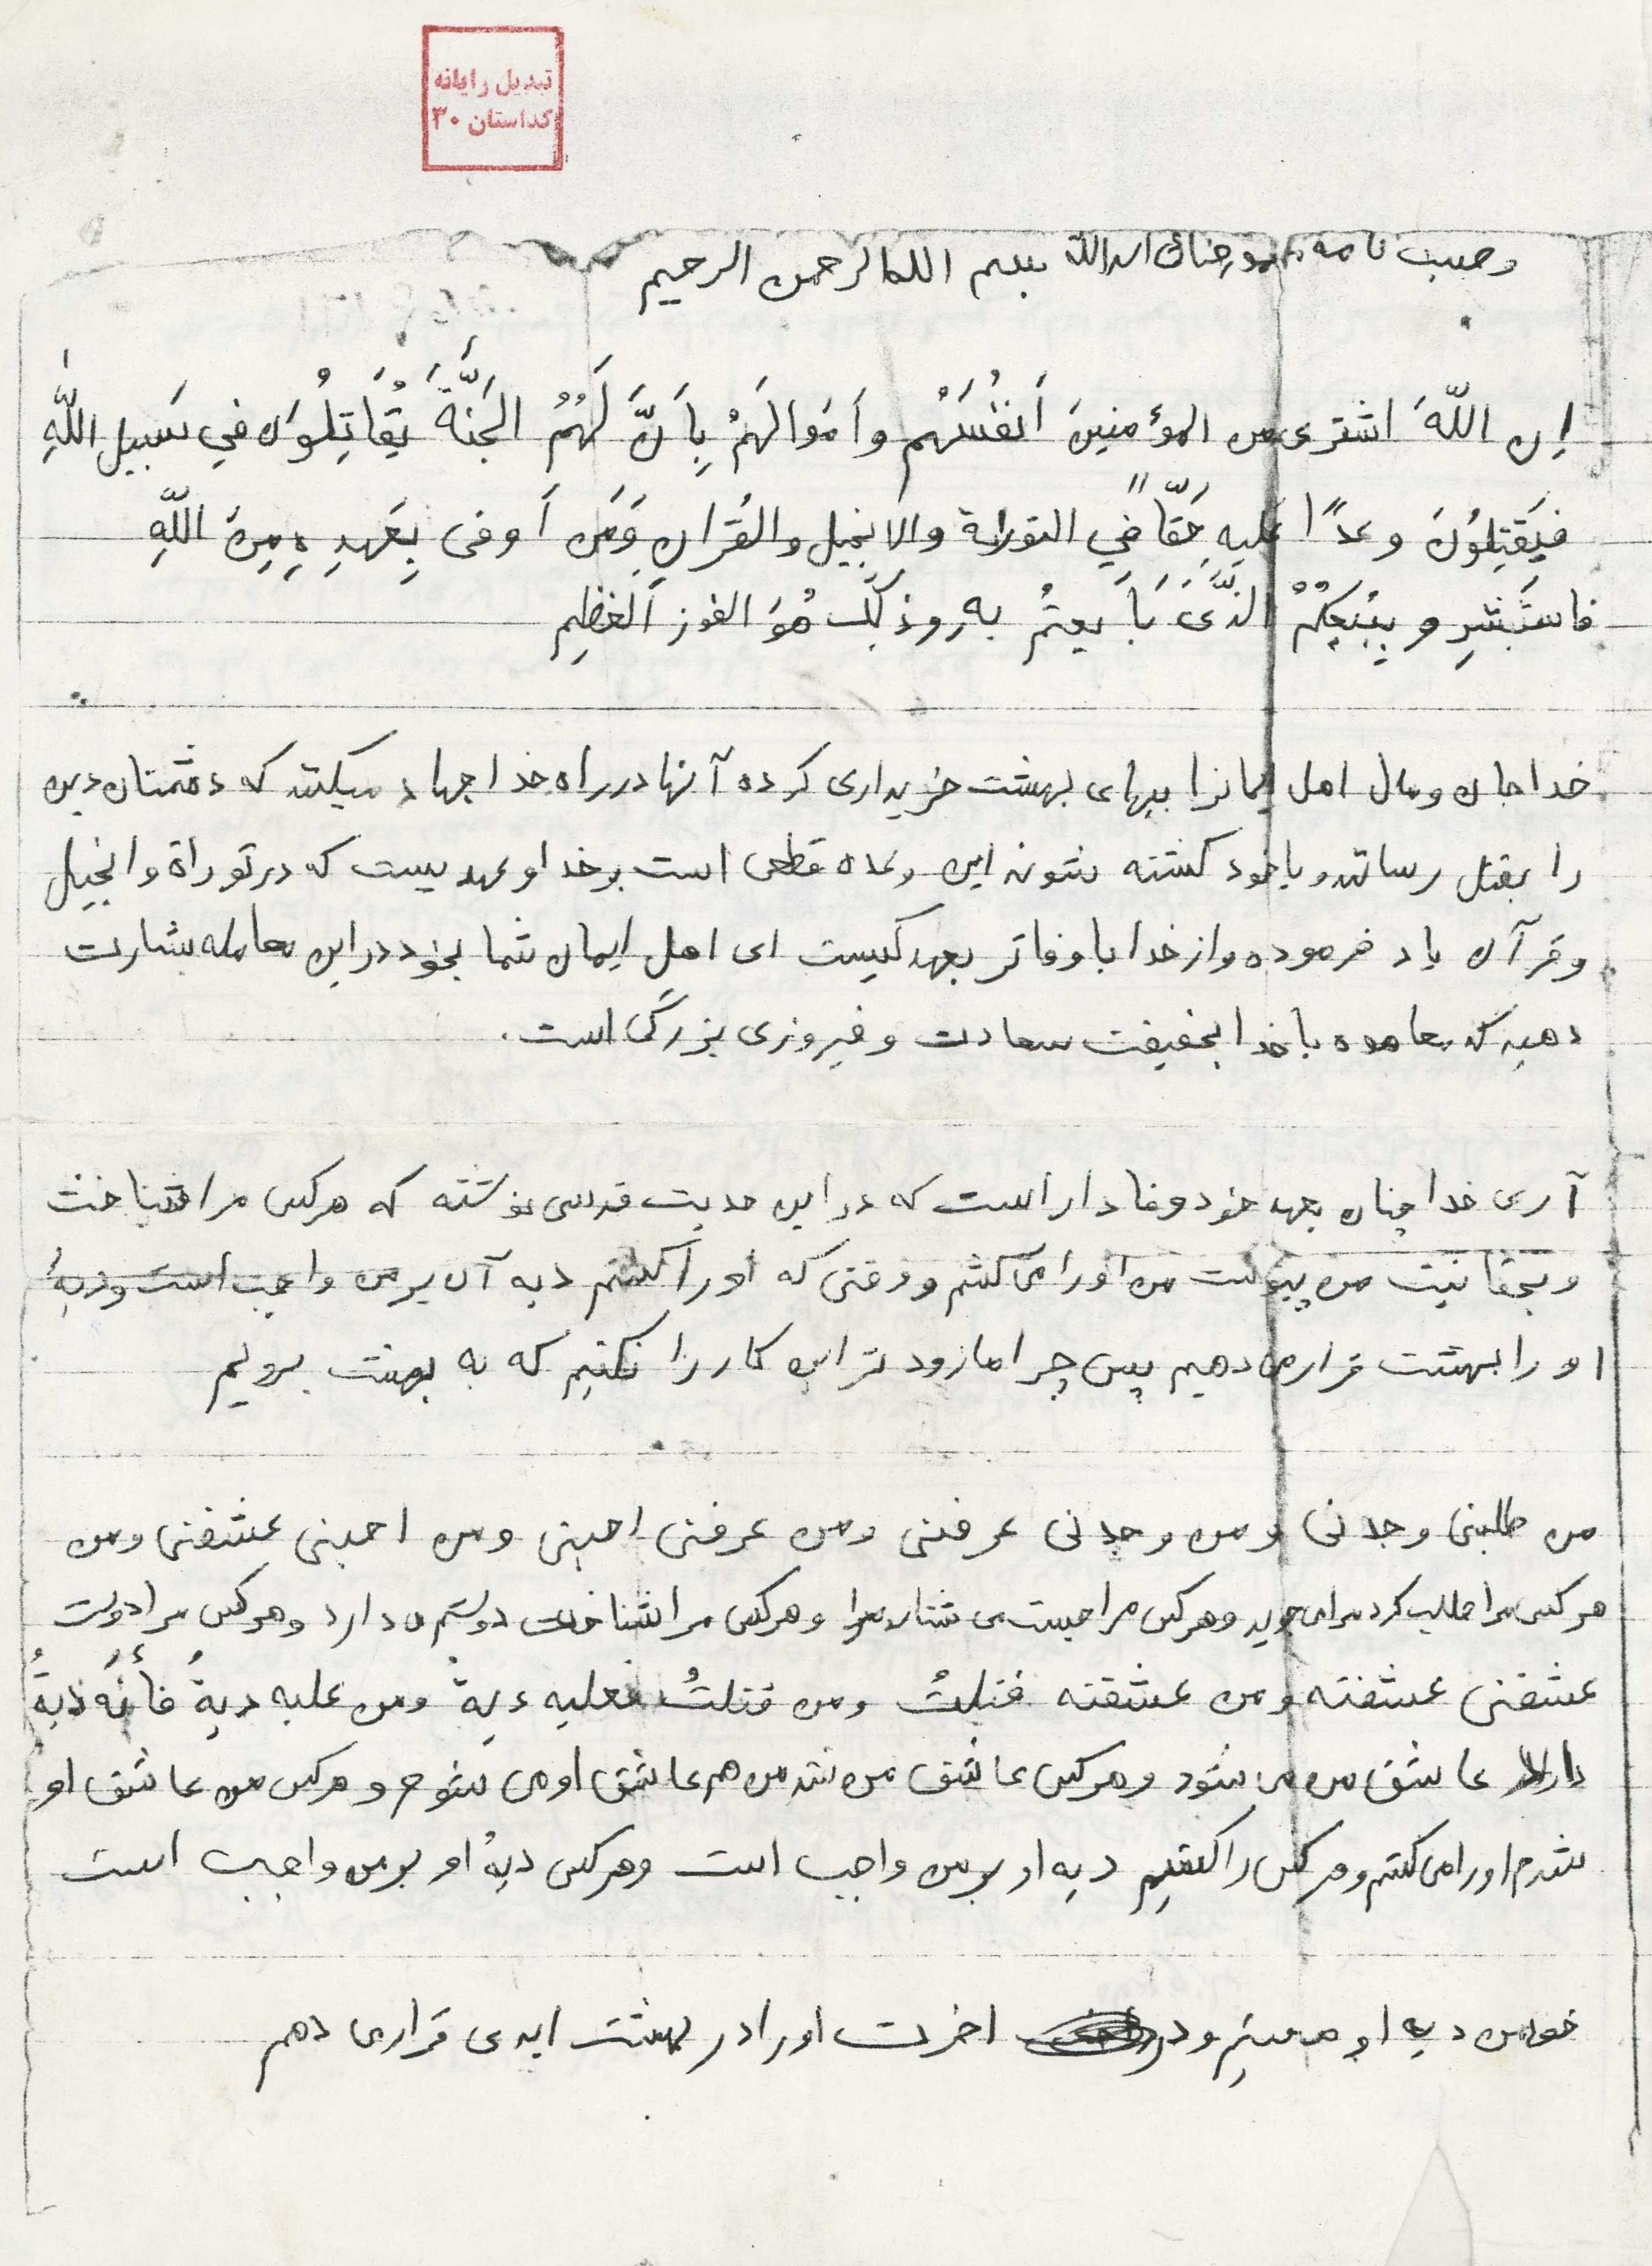 تبدیل رایانه
کداستان ۳۰
وصیت نامه اسدالله بسم الله الرحمن الرحیم
اِن اللّهَ اشتری من المؤمنینَ اَنفُسَهُم واَموَالَهَمْ بِاَنَّ لَهُمُ الجَنَّةَ یُقَاتِلُونَ في سَبیل اللّهِ
فیَقَتِلوُنَ وعدًا علیهِ حَقّاً فيِ التوراة والانجیل والقُران وَمَن اَوفی بِعَهدِهِ مِنَ اللّهِ
فاستَبشِرِو ببَیعِکُمُ الذَّیَ بَاَیعتمُ به وذلَکَ هُوَ الفوز اَلعَظِیم
خدا جان ومال اهل ایمانرا ببهای بهشت خریداری کرده آنها درراه خدا جهاد میکنند که دشمنان دین
را بقتل رسانند و یا خود کشته شوند این وعده قطعی است بر خدا و عهدیست که در توراة وانجیل
وقرآن یاد فرموده واز خدا با وفاتر بعهد کیست ای اهل ایمان شما بخود در این معامله بشارت
دهید که معاهده با خدا بحقیقت سعادت و فیروزی بزرگی است.
آری خدا چنان بعهد خود وفادار است که در این حدیث قدسی نوشته که هرکس مرا شناخت
وبحقانیت من پیوست من اورا می کشم ووقتی که اورا کشتم دیه آن بر من واجب است ودیهٔ
او را بهشت قرار می دهیم پس چرا ما زودتر این کار را نکنیم که به بهشت برویم
من طلبنی وجدنی ومن وجدنی عرفنی ومن عرفنی احبنی ومن احبنی عشقنی ومن
هرکس مرا طلب کرد مرا می جوید وهرکس مرا جست می شناسد مرا وهرکس مرا شناخت دوستم می دارد وهرکس مرا دوست
عشقنی عشقته ومن عشقته قتلتُ ومن قتلتُ فعلیه دیةُ ومن علیه دیةُ فأنَه دیةُ
دارد عاشق من می شود وهرکس عاشق من شد من هم عاشق او می شوم وهرکس من عاشق او
شدم اورا می کشم وهرکس را کشتیم دیه او بر من واجب است وهرکس دیهٔ او بر من واجب است
خودمن دیه او هستم ودر اخرت اورا در بهشت ابدی قرار می دهم